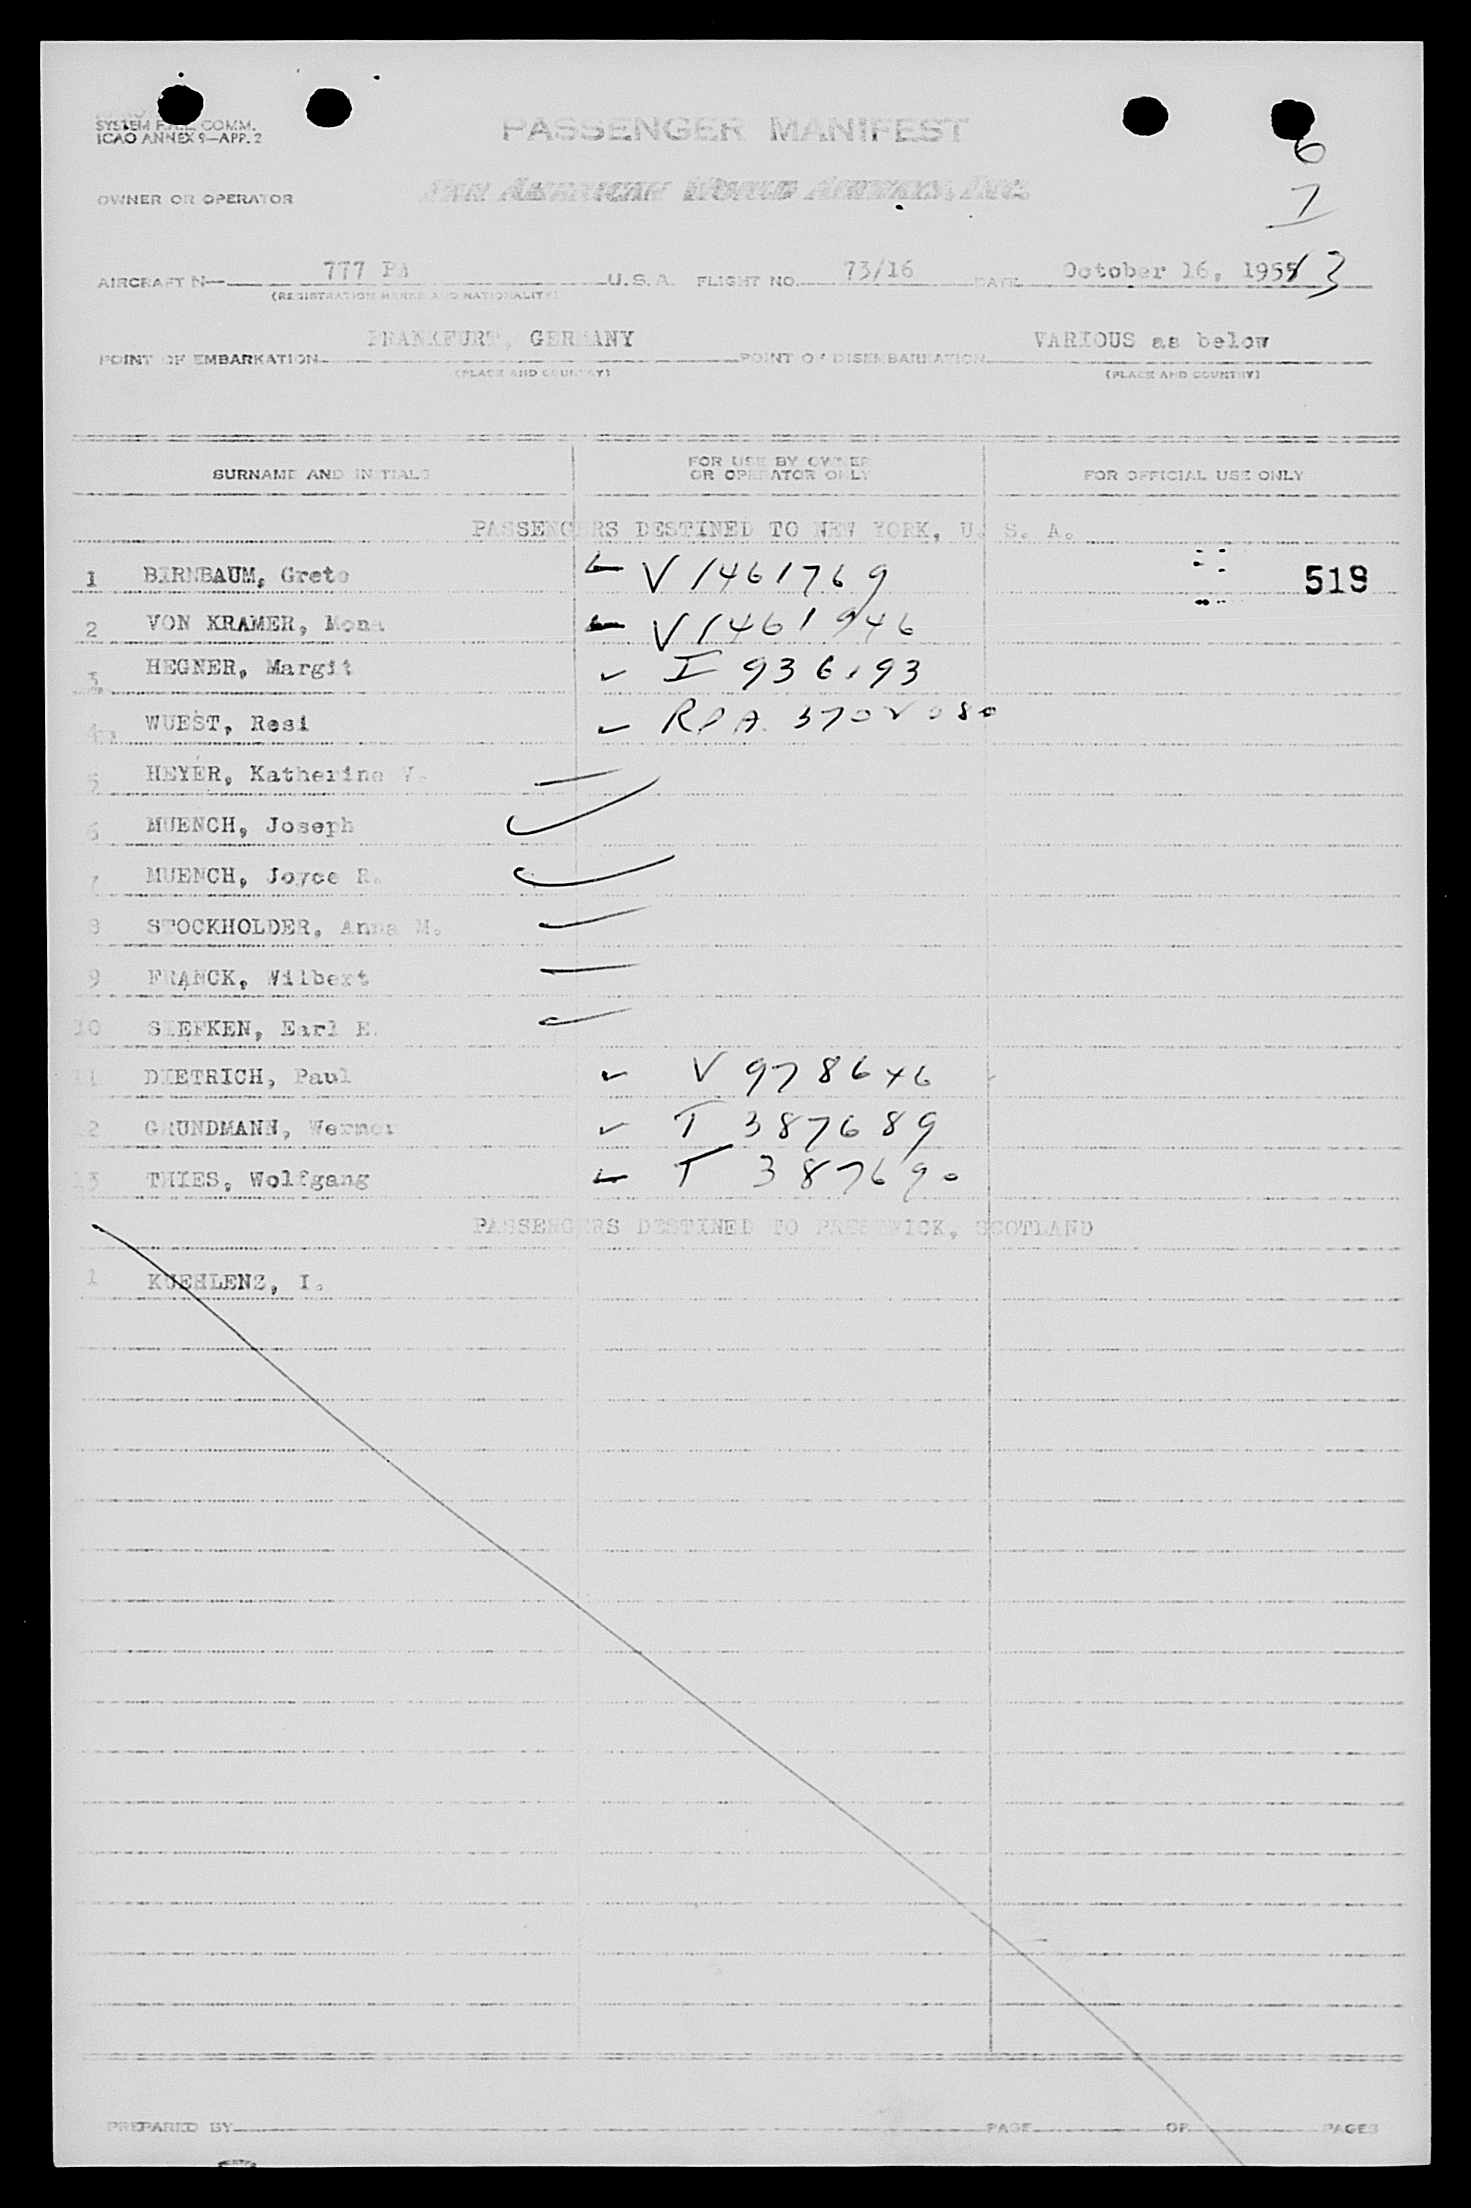 SYSTEM F.A.L. COMM.
ICAO ANNEX 9—APP. 2
PASSENGER MANIFEST
6
7
13
OWNER OR OPERATOR PAN AMERICAN WORLD AIRWAYS, INC.
AIRCRAFT N— 777 PA U. S. A. FLIGHT NO. 73/16 DATE October 16, 1955
(REGISTRATION MARKS AND NATIONALITY)
POINT OF EMBARKATION FRANKFURT, GERMANY POINT OF DISEMBARKATION VARIOUS as below
(PLACE AND COUNTRY) (PLACE AND COUNTRY)
SURNAME AND INITIALS FOR USE BY OWNER OR OPERATOR ONLY FOR OFFICIAL USE ONLY
PASSENGERS DESTINED TO NEW YORK, U. S. A.
1 BIRNBAUM, Grete V1461769 519
2 VON KRAMER, Mona V1461946
3 HEGNER, Margit I 936193
4 WUEST, Resi
5 HEYER, Katherine V.
6 MUENCH, Joseph
7 MUENCH, Joyce R.
8 STOCKHOLDER, Anna M.
9 FRANCK, Wilbert
10 SIEFKEN, Earl E.
11 DIETRICH, Paul V 978646
12 GRUNDMANN, Werner T 387689
13 THIES, Wolfgang T 387690
PASSENGERS DESTINED TO PRESTWICK, SCOTLAND
1 KUEHLENZ, I.
PREPARED BY PAGE OF PAGES